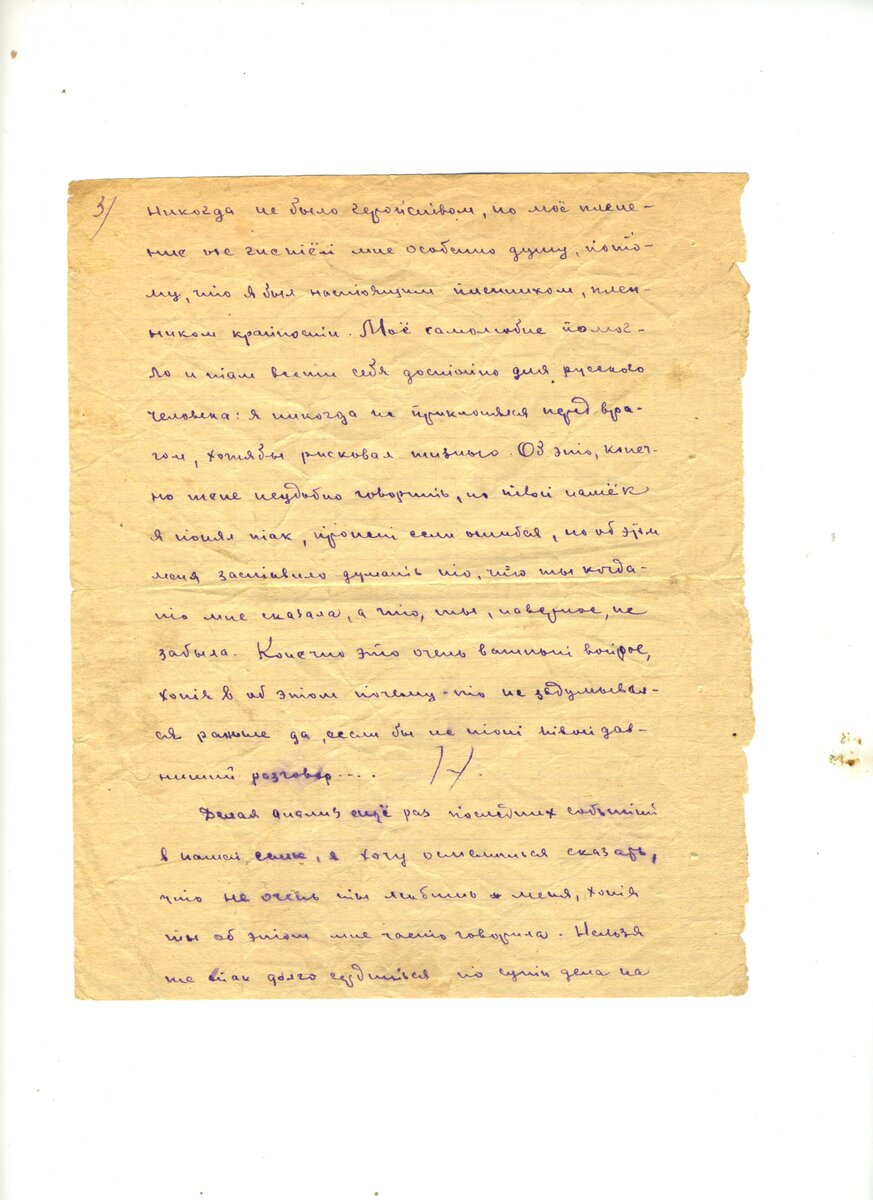 3/
никогда не было геройством, но моё плене-
ние не гнетёт мне особенно душу, пото-
му, что я был настоящим пленником, плен-
ником крайности. Моё самолюбие помог-
ло и там вести себя достойно для русского
человека: я никогда не приклонялся перед вра-
гом, хотябы рисковал жизнью. Об это, конеч-
но мене неудобно говорить, но твой намёк
я понял так, прости если ошибся, но об этом
меня заставило думать то, что ты когда-
то мне сказала, а что, ты, наверное, не
забыла. Конечно это очень важный вопрос,
хотя я об этом почему-то не задумывал-
ся раньше да, если бы не тот твой дав-
нишний разговор....
Делая анализ ещё раз последних событий
в нашей семье, я хочу осмелиться сказать,
что не очень ты любишь меня, хотя
ты об этом мне часто говорила. Нельзя
же так долго сердиться по сути дела на